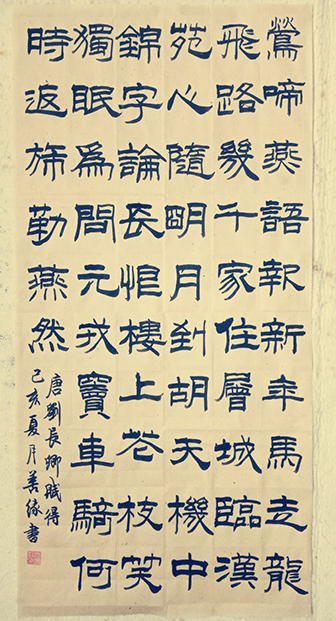 鶯啼燕語報新年馬走龍
飛路幾千家住層城臨漢
苑心隨明月到胡天機中
錦字論長恨樓上花枝笑
獨眠爲問元戎竇車騎何
時返旆勒燕然
唐劉長卿賦得
己亥夏月善緣書